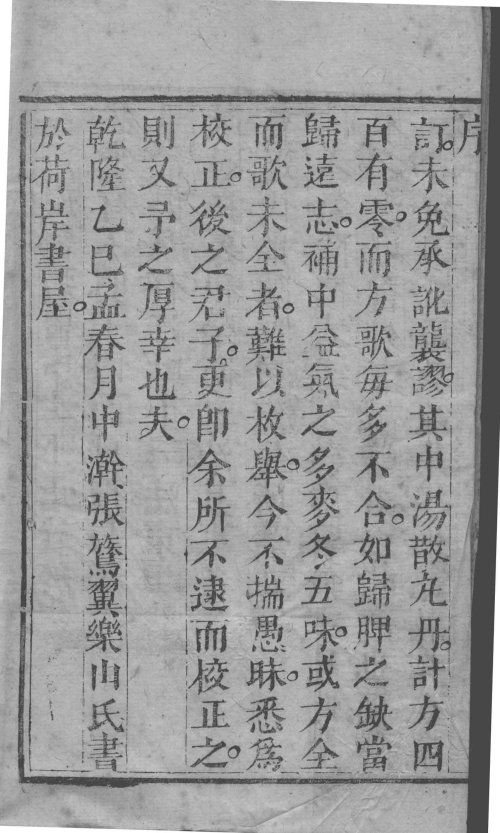 序
訂。未免承訛襲謬。其中湯散丸丹。計方四
百有零。而方歌每多不合。如歸脾之缺當
歸遠志。補中益氣之多麥冬五味。或方全
而歌未全者。難以枚舉。今不揣愚昧。悉爲
校正。後之君子。更卽余所不逮而校正之。
則又予之厚幸也夫。
乾隆乙巳孟春月中澣張鷟翼樂山氏書
於荷岸書屋。